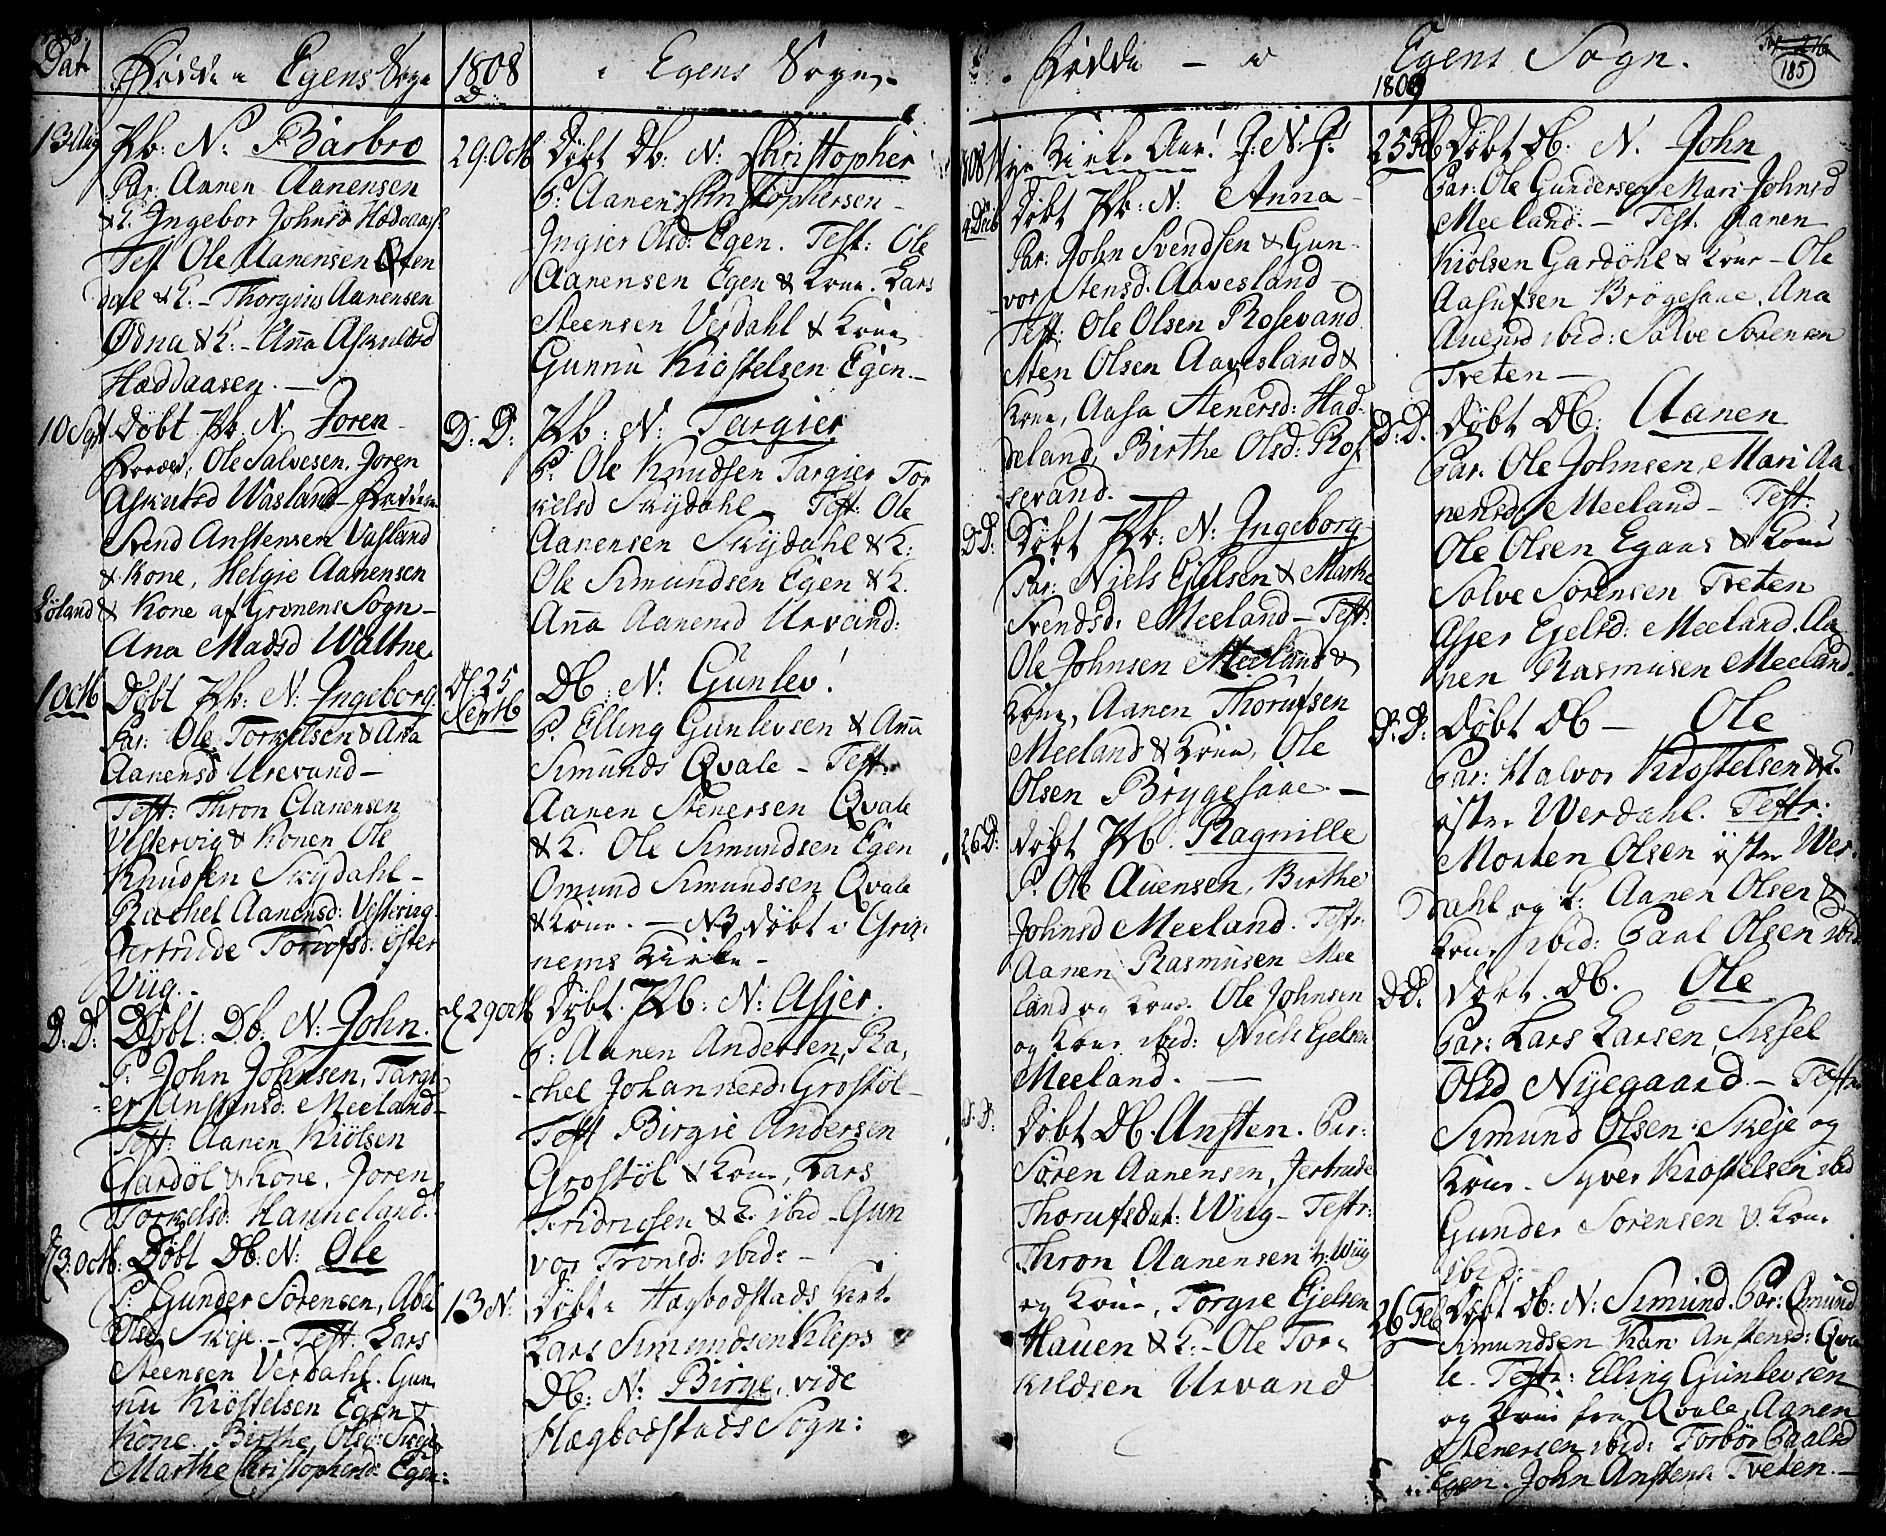 Dat
Födde i Egens Sogn
13 Aug
Pb: N: Barbro
Par: Aanen Aanensen
& K. Ingebor Johnsd Hæddaas:
Test Ole Aanensen
dal & K. – Thorgius Aanensen
Ødna & K: – Ana Askuldsd
Hæddaasen. –
10 Sept
Döbt Pb. N. Joren
Ole Salvesen, Joren
Askutsd Wasland –
Svend Anstensen Vasland
& Kone, Helgie Aanensen
Löland & Kone af Grinens Sogn –
Ana Madsd Waltne
1 Octb
Döbt Pb: N: Ingeborg
Par: Ole Torkelsen & Ana
Aanensd Urevand –
Test: Thron Aanensen
Vestervig & Konen Ole
Knudsen Skÿdahl –
Rachel Aanensd: Vestvig
Gertrude Torufsd: öster
Viig. –
D: D:
Döbt: Db: N: John.
P: John Johnsen, Targi
er Anstensd: Meeland –
Test: Aanen Kiölsen
Gardöl & Kone, Joren
Torkelsd: Hanneland.
Octb:
Döbt Db: N: Ole
P: Gunder Sörensen, Abel
Olsd Skeje. – Test: Lars
Steensen Verdahl. Gun
nu Kiöstelsen Egen &
Kone. Birthe Olsd: Skeje
Marthe Christophersd: Egen:
1808
i Egens Sogn –
29: Octb
Döbt Db: N: Christopher
P: Aanen Christophersen –
Ingier Olsd: Egen. Test: Ole
Aanensen Egen & Kone. Lars
Steensen Verdahl & Kone
Gunnu Kiostelsen Egen. –
D: D:
Pb: N: Targier
P: Ole Knudsen Targier Tor
kelsd Skÿdahl – Test: Ole
Aanensen Skÿdahl & K:
Ole Simundsen Egen & K.
Ana Aanensd Urvand:
D: 25 Septb
Db: N: Gunlev!
P. Elling Gunlevsen & Ana
Simunds Qvale – Test.
Aanen Stenersen Qvale
& K. Ole Simundsen Egen
Omund Simundsen Qvale
& Kone. – NB döbt i Grin
nems Kirke –
D 29 Octb
Döbt. Pb: N: Asjer.
P: Aanen Andersen, Ra,
chel Johannesd: Grostöl –
Test Birgie Andersen
Grostöl & Kone, Lars
Fridricsen & K. ibid – Gun
vor Tronsd: ibid: –
13 N:
Döbt i Hægbodstads Kirke
Lars Simundsen Kleps
Db: N: Birge, vide
Hægbodstads Sogn:
Födde – i Egens Sogn.
185
1809
1808
Nye Kirke Aar! J: N: J:
4 Decb
Döbt Pb: N: Anna –
Par: John Svendsen & Gun
vor Stensd. Aavesland –
Test: Ole Olsen Rosevand
Sten Olsen Aavesland &
Kone, Aasa Stenersd: Had
deland, Birthe Olsd: Ros
sevand.
D D:
Döbt Pb: N: Ingeborg
Par: Niels Ejelsen & Marthe
Svendsd: Meeland – Test:
Ole Johnsen Meeland &
Kone, Aanen Thorufsen
Meeland & Kone, Ole
Olsen Brygesaae –
26 D:
Döbt Pb. Ragnille
P. Ole Auensen, Birthe
Johnsd Meeland. Testr:
Aanen Rasmusen Mee
land og Kone. Ole Johnsen
og Kone ibid: Niels Ejelsen
Meeland. –
D: D:
Döbt Db. Ansten. Par:
Sören Aanensen, Jertrude
Thorufsdat: Wiig – Testr:
Thron Aanensen W: Wiig
og Kone, Torgie Ejelsen
Hauen & K: – Ole Tor
kildsen Urvand
25 Feb
Döbt Db. N. John
Par: Ole Gundersen, Mari Johnsd
Meeland. – Test. Aanen
Kiölsen Gardöhl & Kone – Ole
Aasufsen Brögesaae, Ana
Auensd ibid: Salve Sörensen
Treten –
D: D.
Döbt Db: Aanen
Par: Ole Johnsen, Mari Aa
nensd Meeland – Test:
Ole Olsen Egaas & Kone
Salve Sörensen Treten
Asjer Ejelsd: Meeland. Aa
nen Rasmusen Meeland.
D: D:
Döbt Db – Ole
Par: Halvor Kiostelsen & K.
öster Werdahl. Testr:
Morten Olsen öster Wer
dahl og K: Aanen Olsen &
Kone ibid: Paal Olsen ibid
D D:
Döbt. Db. Ole
Par: Lars Larsen, Sissel
Olsd Nyegaard – Testr
Simund Olsen Skeje og
Kone. Syver Kiostelsen ibid
Gunder Sörensen & Kone
ibid: –
26 Feb
Döbt Db: N: Simund. Par: Omund
Simundsen Kari Anstensd: Qva
le. Testr: Elling Gunlevsen
og Kone fra Qvale, Aanen
Stenersen ibid: Torbör Paalsd
Egen. John Anstens Treten. –